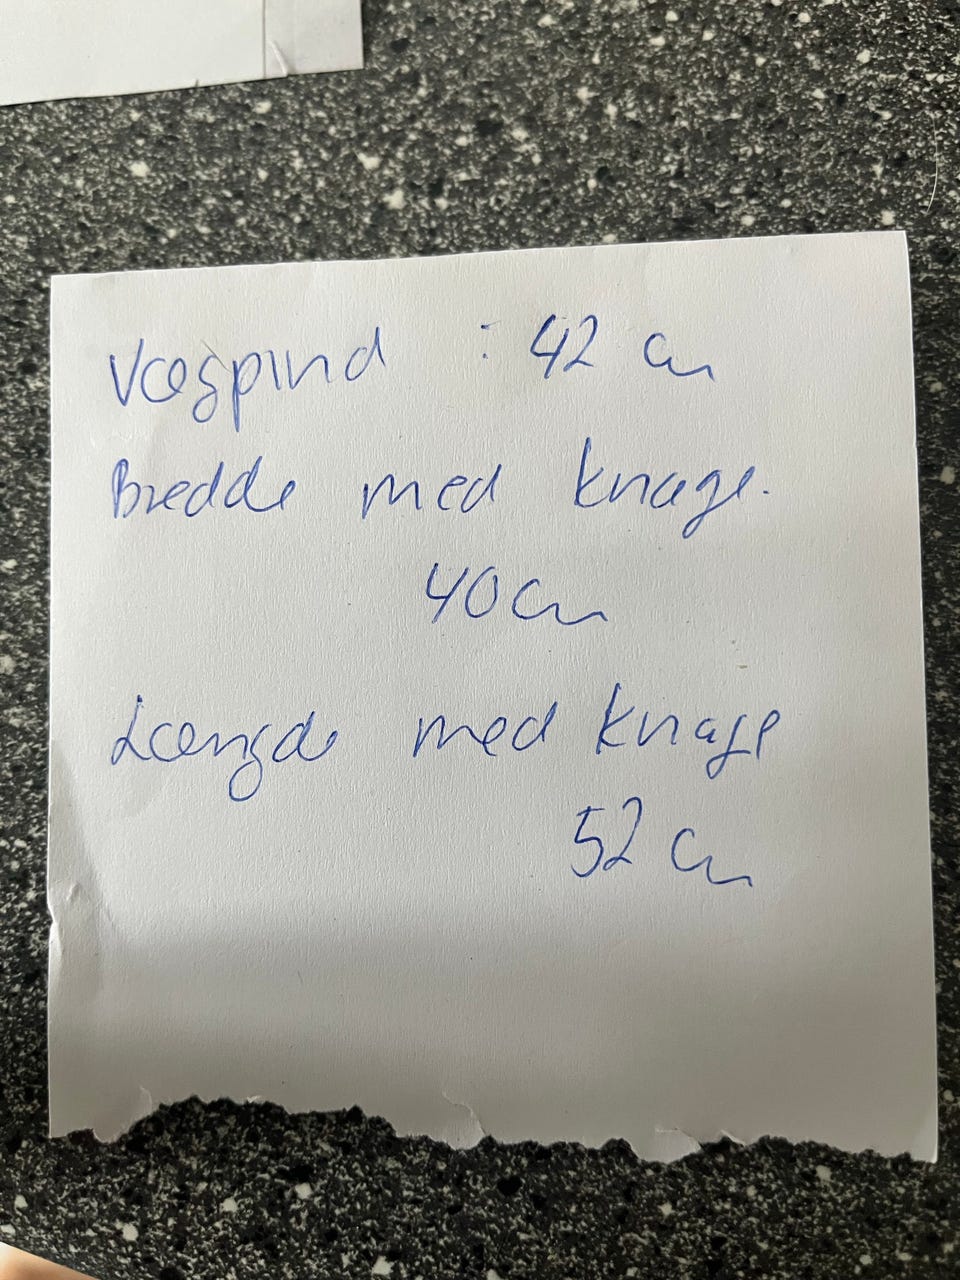 Vægpind : 42 cm
Bredde med knage.
40 cm
Længde med knage
52 cm